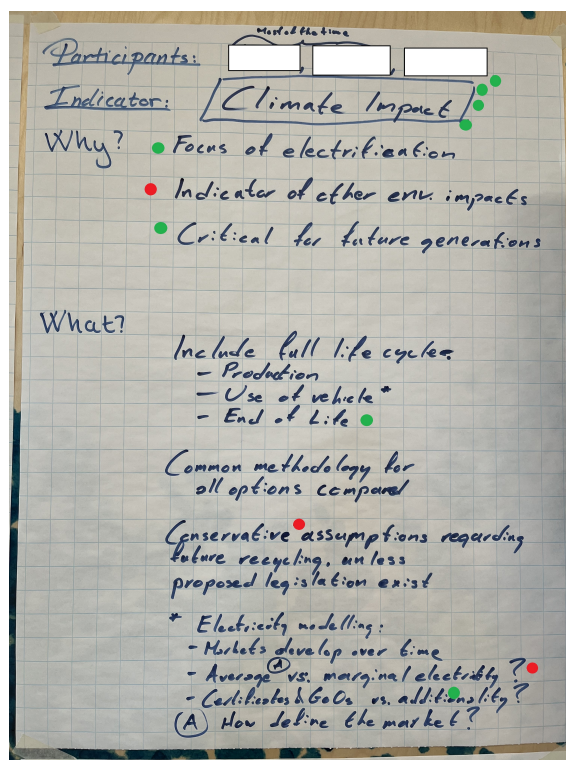 Most of the time
Participants:
Indicator: Climate Impact
Why? Focus of electrification
Indicator of other env. impacts
Critical for future generations
What?
Include full life cycle:
- Production
- Use of vehicle *
- End of Life
Common methodology for
all options compared
Conservative assumptions regarding
future recycling, unless
proposed legislation exist
* Electricity modelling:
- Markets develop over time
- Average (A) vs. marginal electricity?
- Certificates & GoOs vs. additionality?
(A) How define the market?